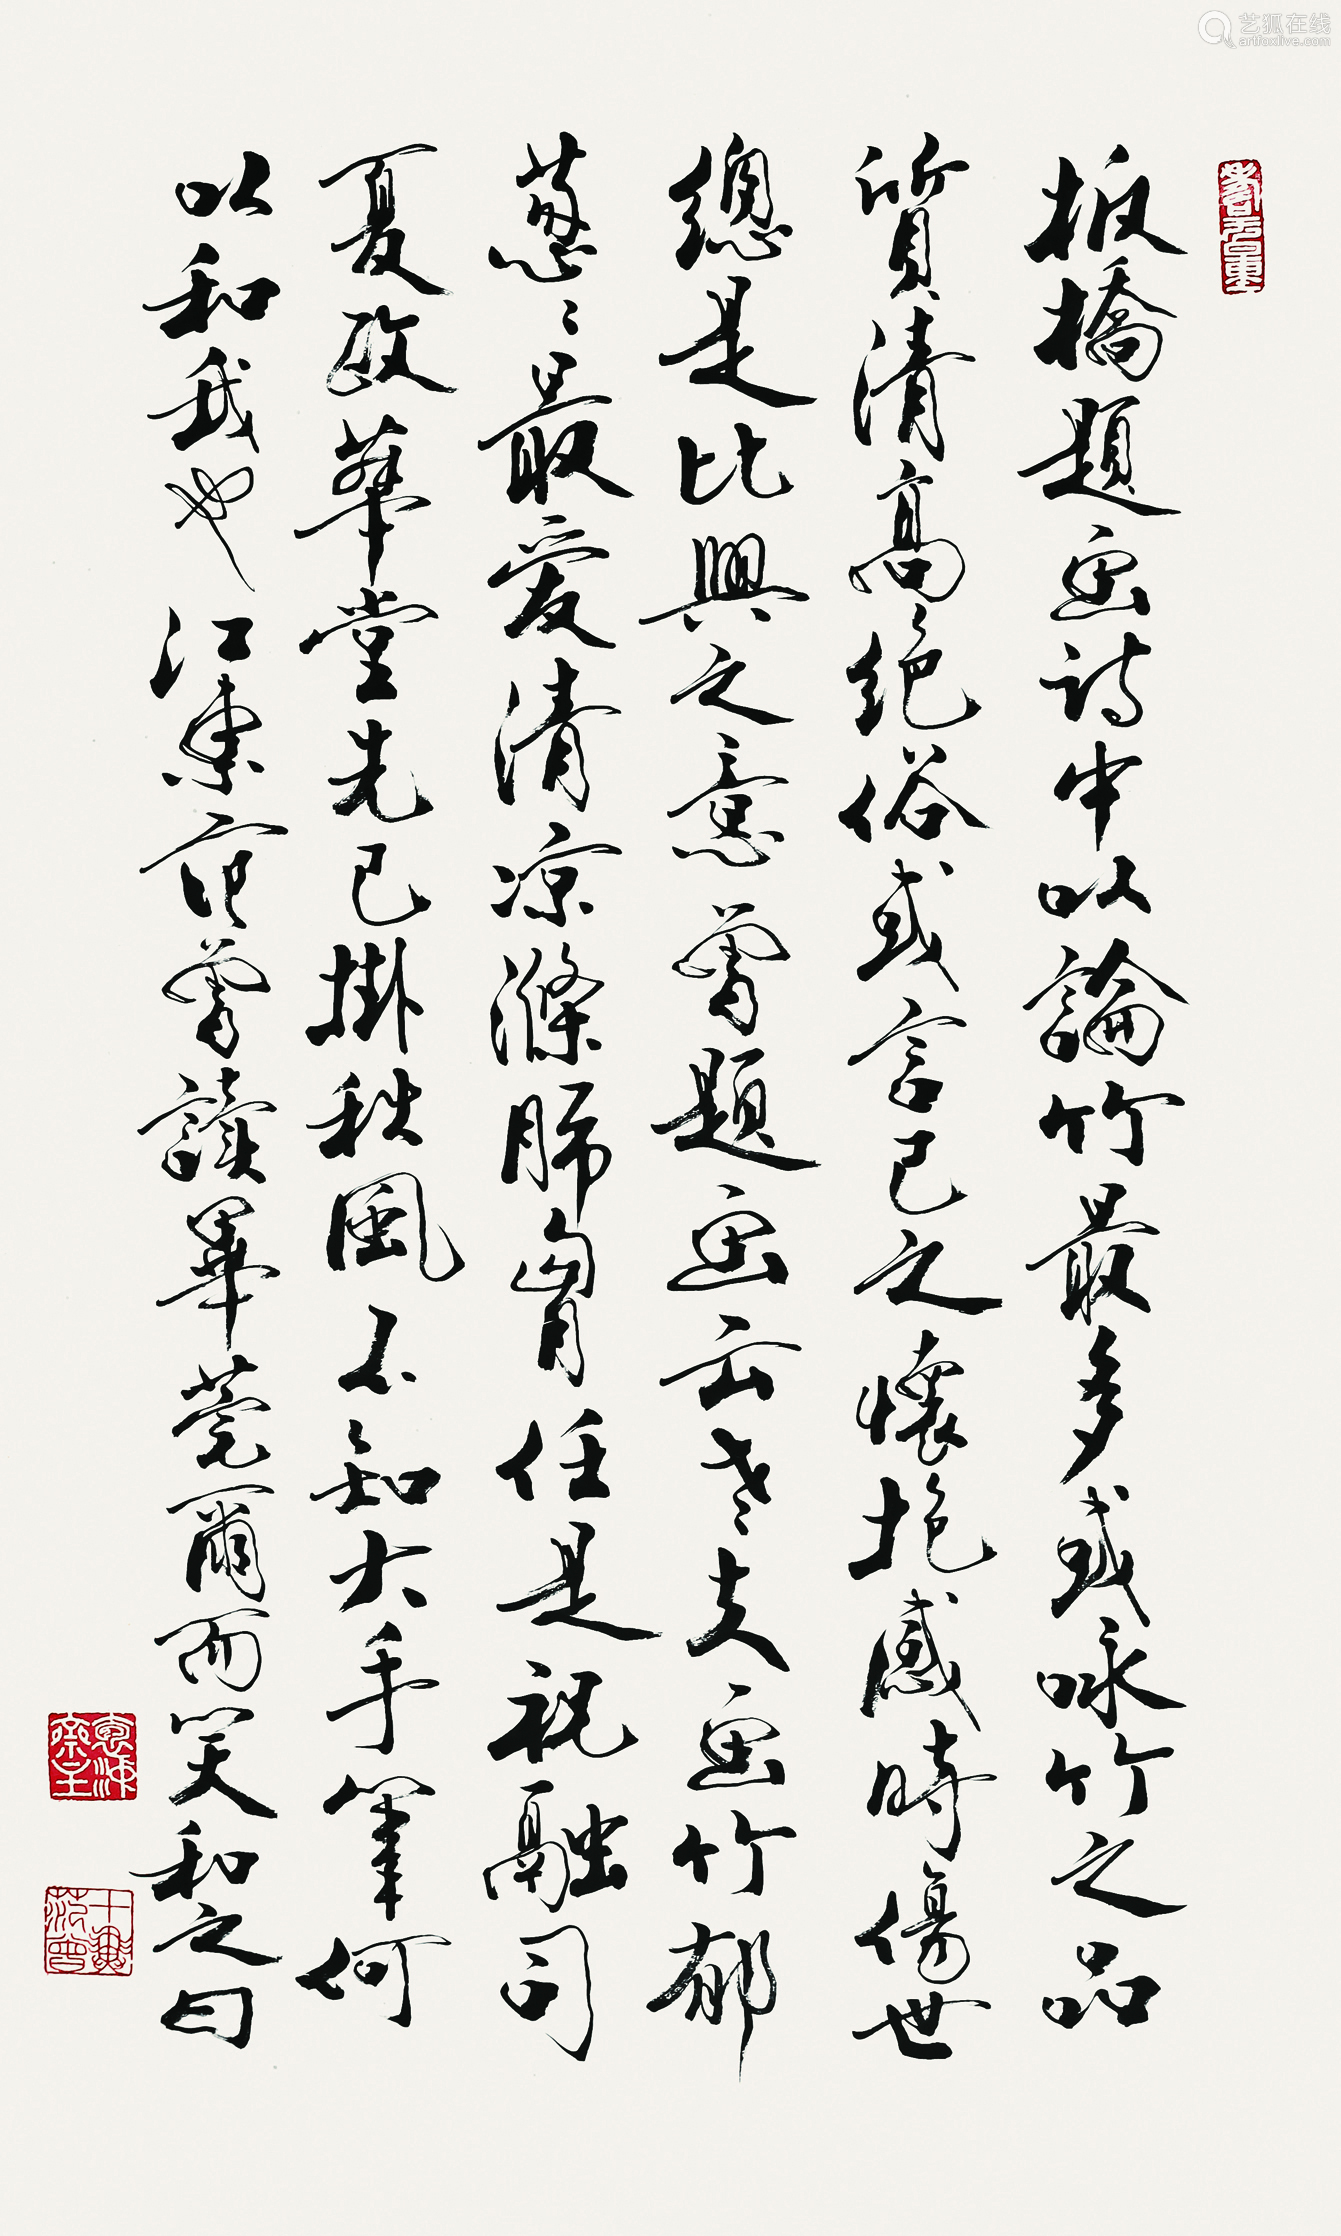 艺狐在线
artfoxlive.com
板橋題画诗中以論竹最多或咏竹之品
質清高绝俗或言己之懷抱感時傷世
總是比興之意曾題画云老夫画竹郁
葱々最爱清凉滌肺胃任是祝融司
夏政華堂先已掛秋風不知大手筆何
以和我也江東范曾讀畢莞爾而笑和之曰